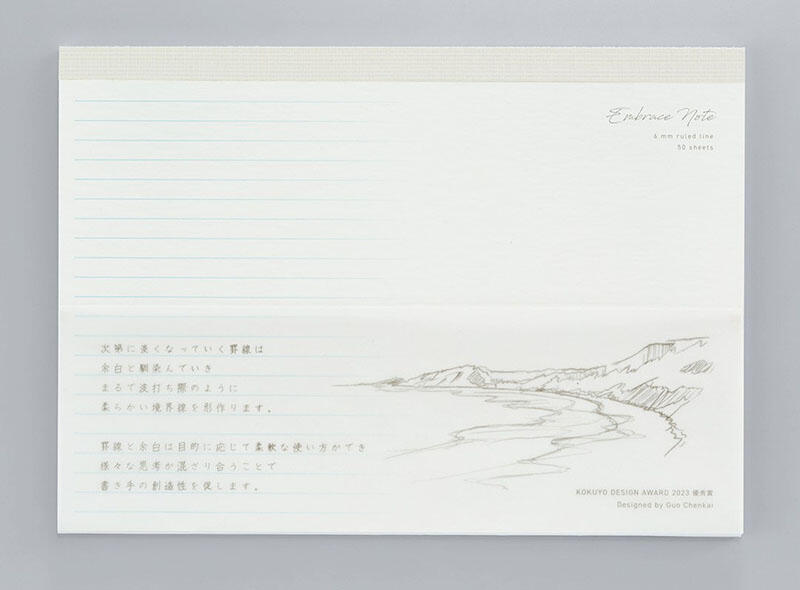 Embrace Note
6 mm ruled line
50 sheets
次第に淡くなっていく罫線は
余白と馴染んでいき
まるで波打ち際のように
柔らかい境界線を形作ります。
罫線と余白は目的に応じて柔軟な使い方ができ
様々な思考が混ざり合うことで
書き手の創造性を促します。
KOKUYO DESIGN AWARD 2023 優秀賞
Designed by Guo Chenkai